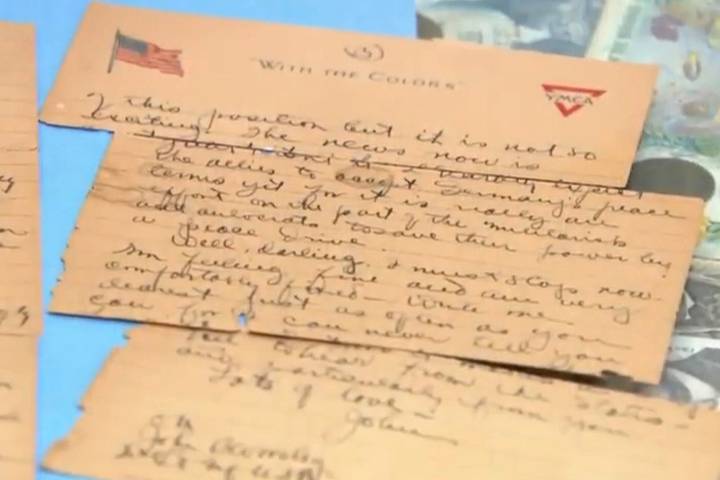 (3)
"WITH THE COLORS"
YMCA
of this position but it is not so
exciting. The news now is
the allies to accept Germany's peace
terms yet for it is really an
effort on the part of the militarists
and autocrats to save their power by
a peace drive.
Well, darling, I must stop now.
I'm feeling fine and am very
comfortably fixed - Write me
dearest just as often as you
can for I can never tell you
to hear from the States -
and particularly from you
Lots of love -
John
John